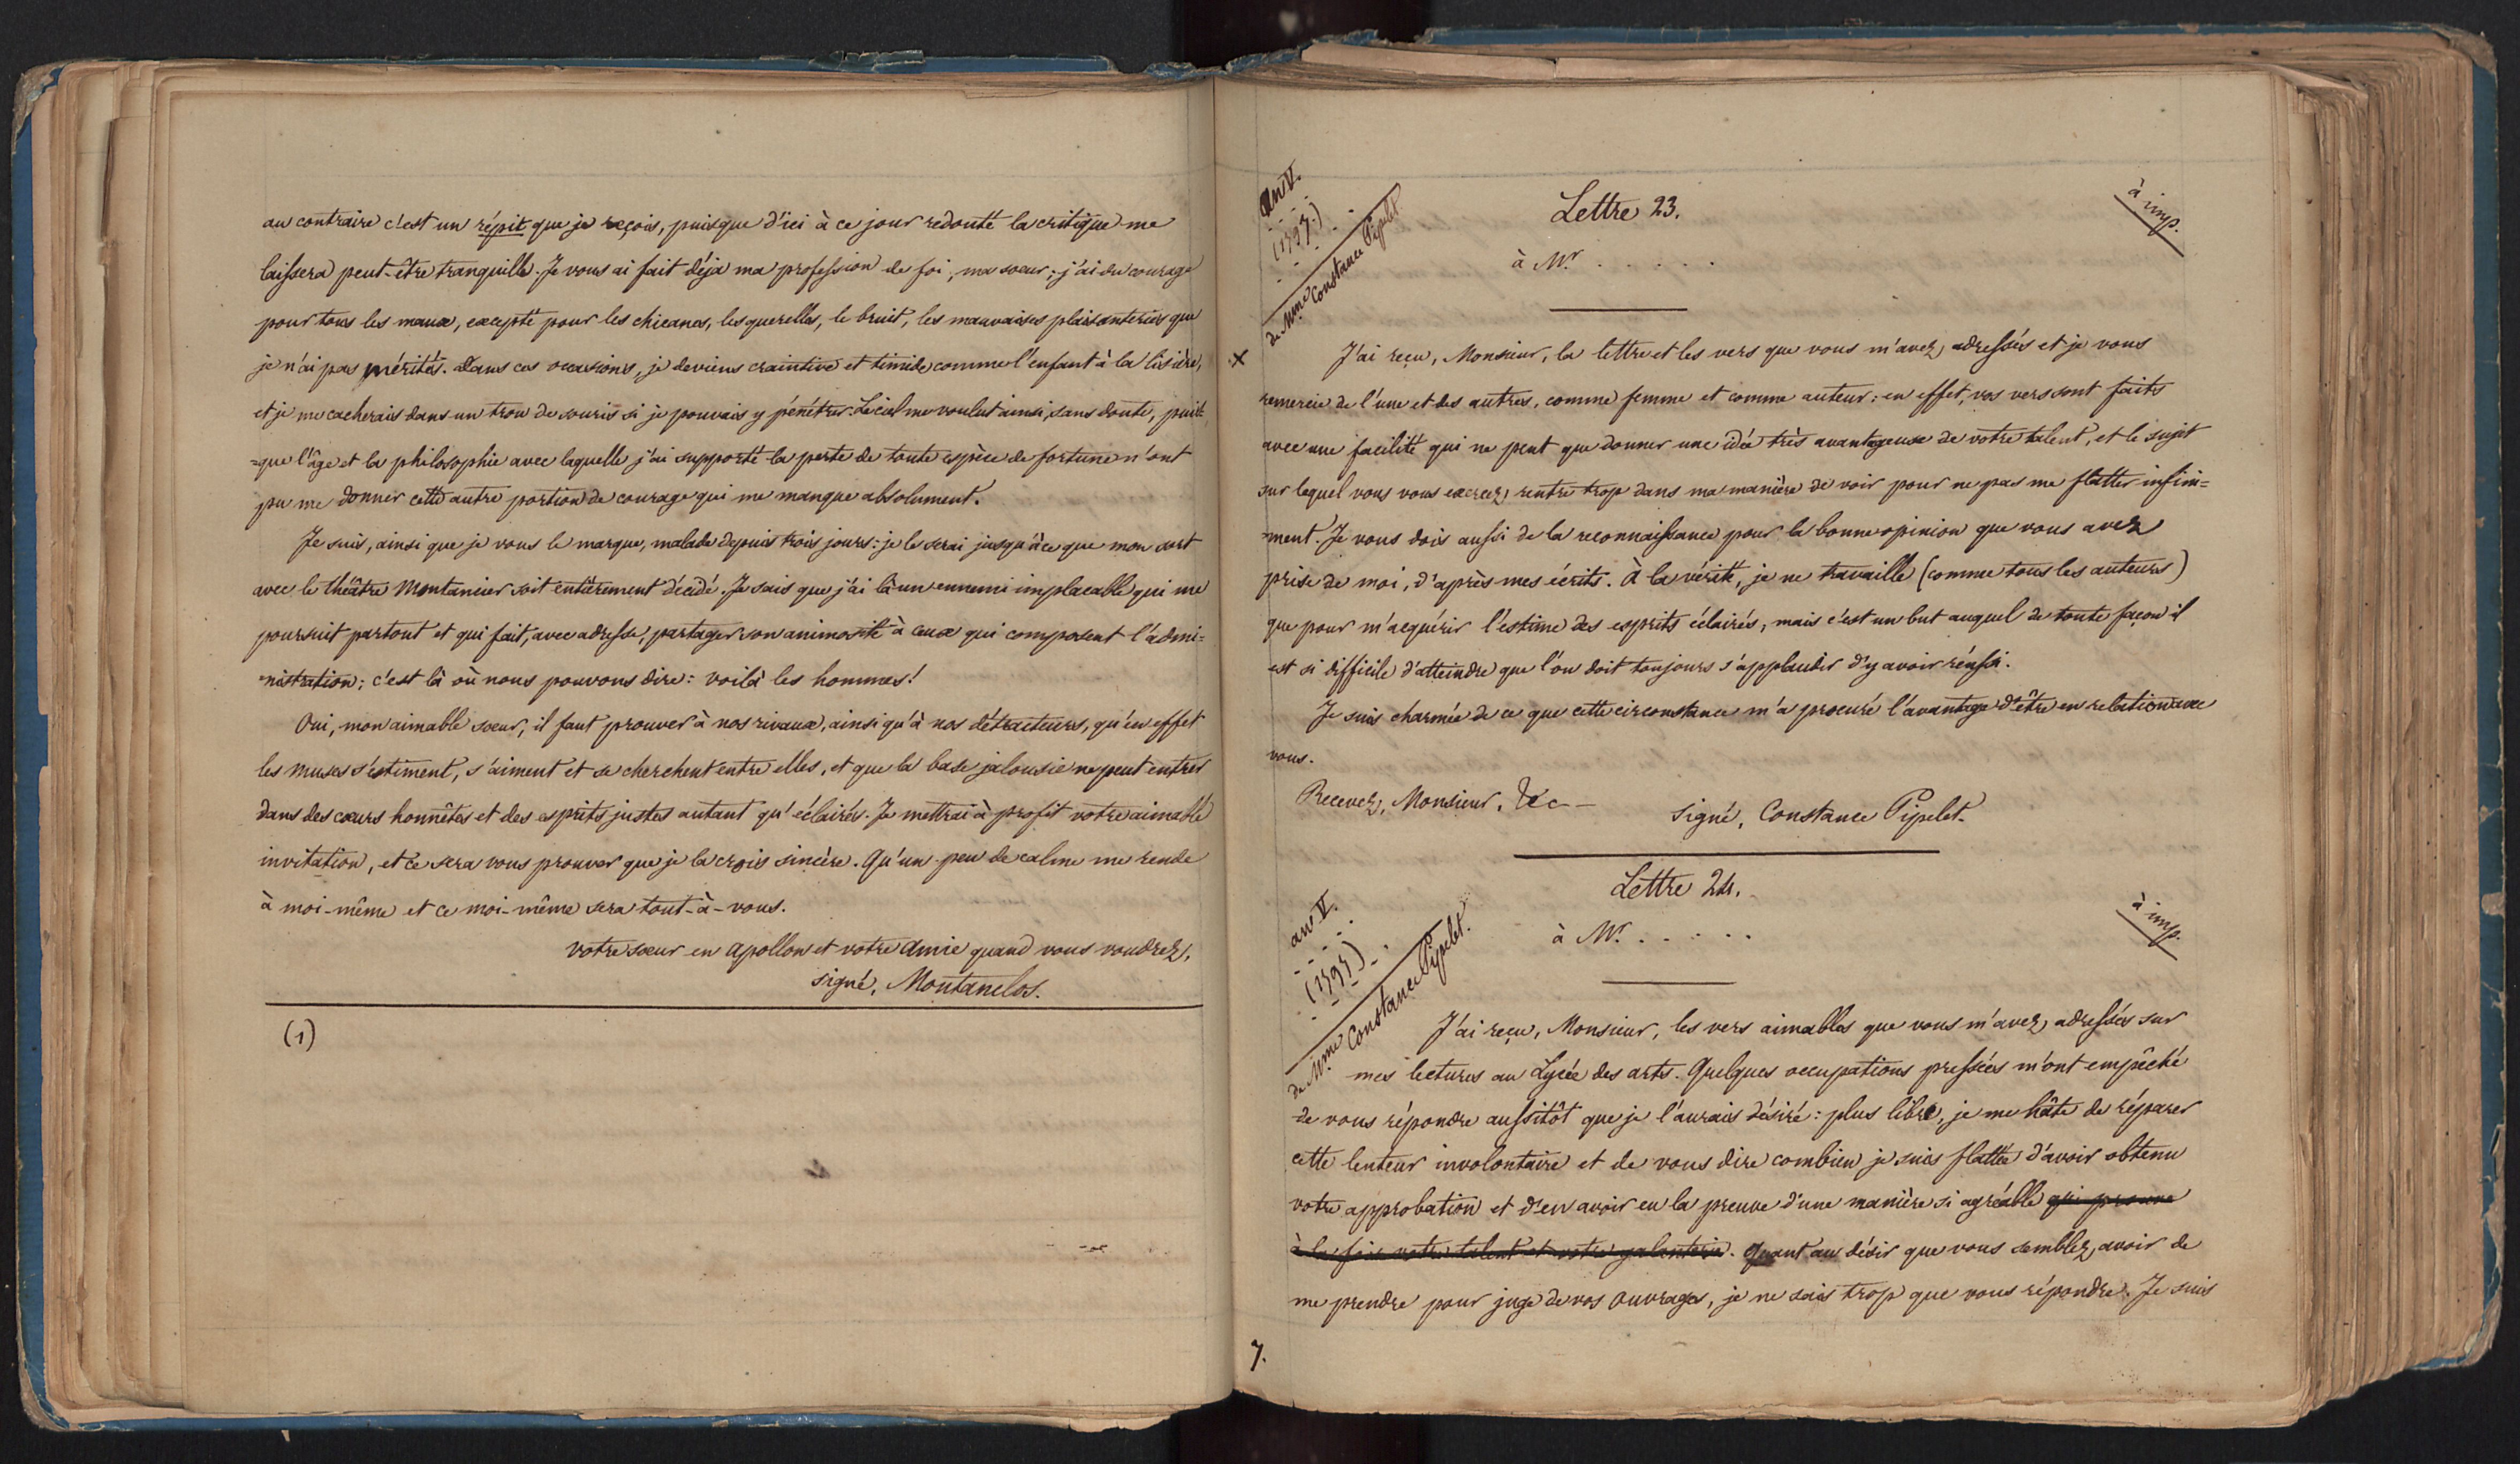 au contraire c'est un répit que je reçois, puisque d'ici à ce jour redouté la critique me
laissera peut-être tranquille. Je vous ai fait déja ma profession de foi, ma sœur; j'ai du courage
pour tous les maux, excepté pour les chicanes, les querelles, le bruit, les mauvaises plaisanteries que
je n'ai pas mérités. dans ces occasions, je deviens craintive et timide comme l'enfant à la lisière,
et je me cacherais dans un trou de souris si je pouvais y pénétrer. Le ciel me voulut ainsi, sans doute, puis-
=que l'âge et la philosophie avec laquelle j'ai supporté la perte de toute espèce de fortune n'ont
pu me donner cette autre portion de courage qui me manque absolument.
Je suis, ainsi que je vous le marque, malade depuis trois jours: je le serai jusqu'à ce que mon sort
avec le théâtre Montansier soit entièrement décidé. Je sais que j'ai là un ennemi implacable qui me
poursuit partout et qui fait, avec adresse, partager son animosité à ceux qui composent l'admi=
=nistration; c'est là où nous pouvons dire: voilà les hommes!
Oui, mon aimable sœur, il faut prouver à nos rivaux, ainsi qu'à nos détracteurs, qu'en effet
les muses s'estiment, s'aiment et se cherchent entre elles, et que la base jalousie ne peut entrer
dans des cœurs honnêtes et des esprits justes autant qu'éclairés. Je mettrai à profit votre aimable
invitation, et ce sera vous prouver que je la crois sincère. Qu'un peu de calme me rende
à moi-même et ce moi-même sera tout-à-vous.
votre sœur en apollon et votre amie quand vous voudrez,
signé, Montanclos.
(1)
an V.
(1797.)
de Mme Constance Pipelet.
Lettre 23.
à imp.
à Mr. . . . . .
+
J'ai reçu, Monsieur, la lettre et les vers que vous m'avez adressés et je vous
remercie de l'une et des autres, comme femme et comme auteur: en effet, vos vers sont faits
avec une facilité qui ne peut que donner une idée très avantageuse de votre talent, et le sujet
sur lequel vous vous exercez rentre trop dans ma manière de voir pour ne pas me flatter infini=
=ment. Je vous dois aussi de la reconnaissance pour la bonne opinion que vous avez
prise de moi, d'après mes écrits. À la vérité, je ne travaille (comme tous les auteurs)
que pour m'acquérir l'estime des esprits éclairés, mais c'est un but auquel de toute façon il
est si difficile d'atteindre que l'on doit toujours s'applaudir d'y avoir réussi.
Je suis charmée de ce que cette circonstance m'a procuré l'avantage d'être en relation avec
vous.
Recevez, Monsieur, &c-
signé, Constance Pipelet.
an V.
(1797)
de Mme Constance Pipelet.
Lettre 24.
à imp.
à Mr. . . . . .
J'ai reçu, Monsieur, les vers aimables que vous m'avez adressés sur
mes lectures au Lycée des arts. Quelques occupations pressées m'ont empêché
de vous répondre aussitôt que je l'aurais désiré: plus libre, je me hâte de réparer
cette lenteur involontaire et de vous dire combien je suis flattée d'avoir obtenu
votre approbation et d'en avoir eu la preuve d'une manière si agréable qui prouve
à la fois votre talent et votre galanterie. Quant au désir que vous semblez avoir de
me prendre pour juge de vos ouvrages, je ne sais trop que vous répondre. Je suis
7.